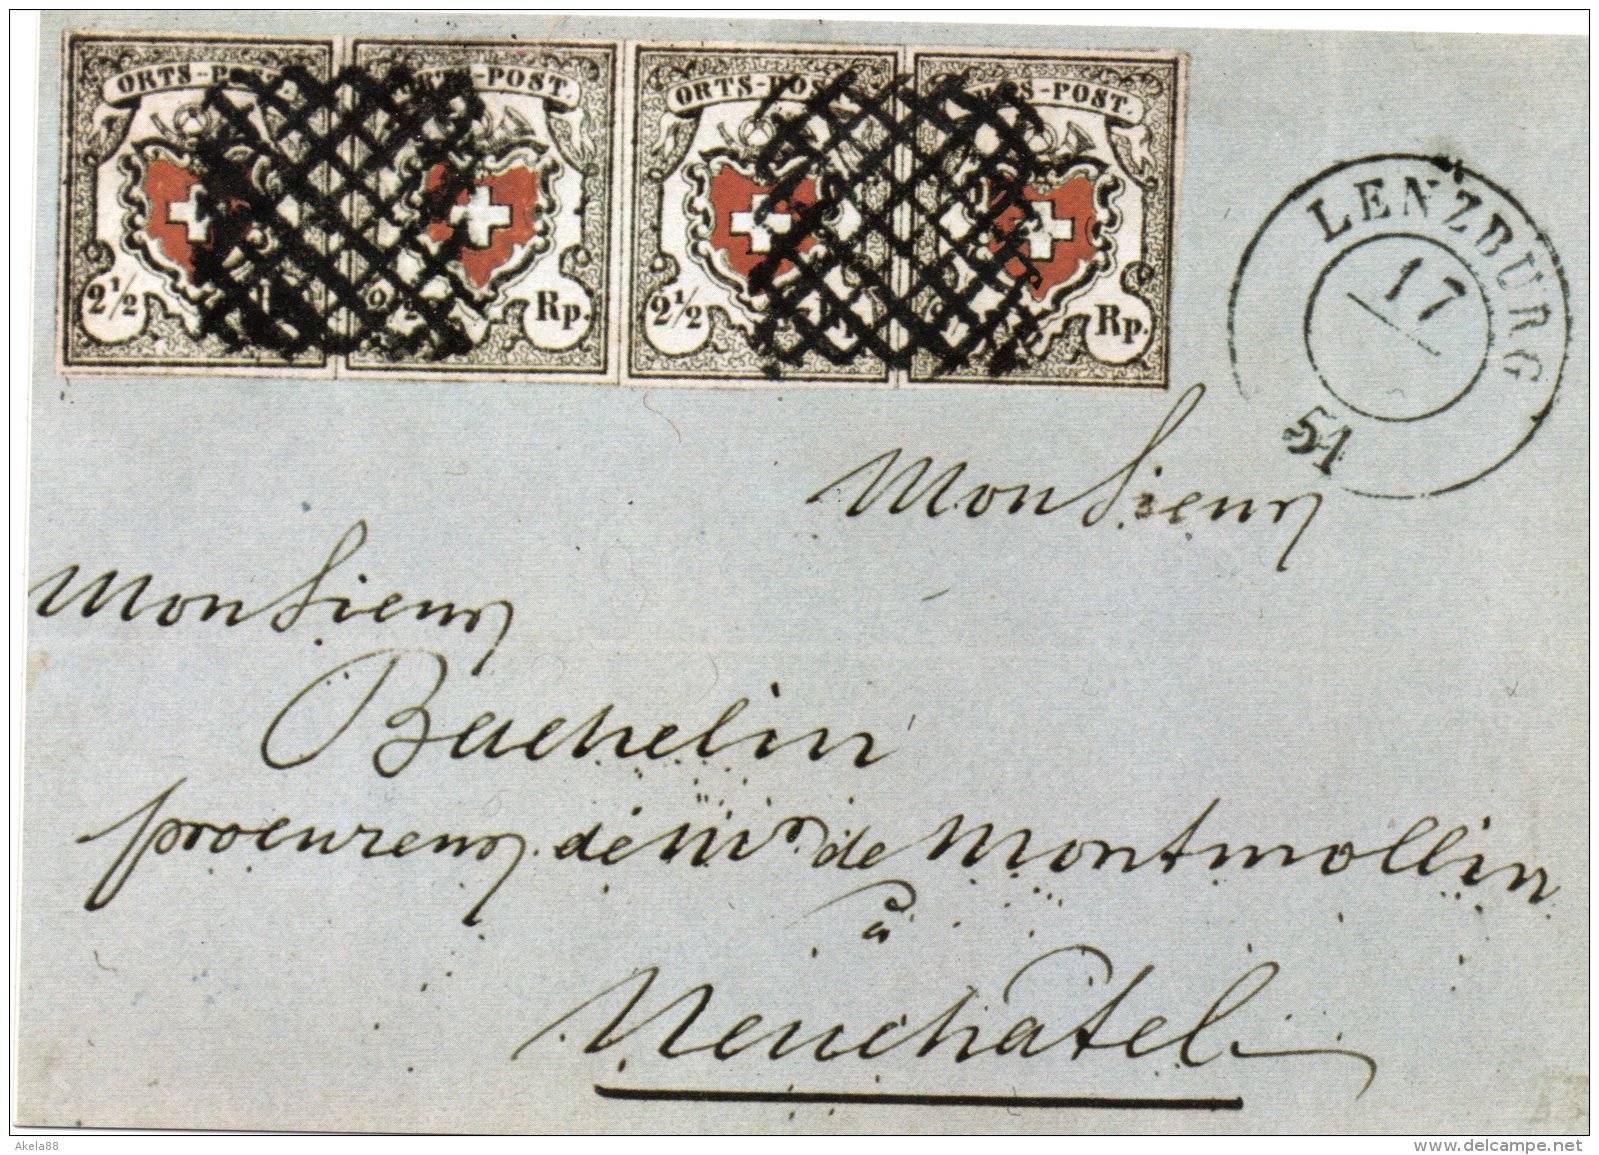 ORTS-POST. ORTS-POST. ORTS-POST. ORTS-POST.
2 1/2 Rp. 2 1/2 Rp.
LENZBURG
17
51
Monsieur
Monsieur
Bachelin
procureur de Mr de Montmollin
à
Neuchâtel
Akela88
www.delcampe.net